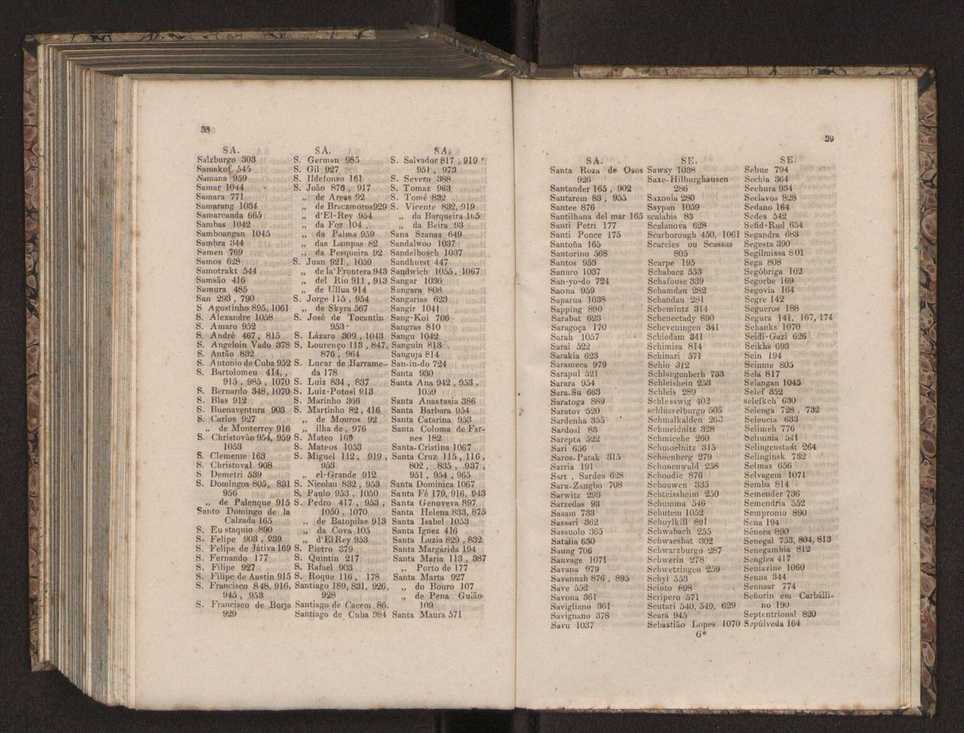 38
SA.
Salzburgo 303
Samakof 545
Samana 959
Samar 1044
Samara 771
Samarang 1034
Samarcanda 665
Sambas 1042
Samboangan 1045
Sambra 344
Samen 769
Samos 628
Samotraki 544
Samsão 416
Samura 485
San 293, 790
S Agostinho 895, 1061
S. Alexandre 1058
S. Amaro 952
S. André 467, 815
S. Angeloin Vado 378
S. Antão 832
S. Antonio de Cuba 952
S. Bartolomeu 414,
915, 985, 1070
S. Bernardo 348, 1070
S. Blas 912
S. Buenaventura 903
S. Carlos 927
„ de Monterrey 916
S. Christovão 954, 959
1053
S. Clemente 163
S. Christoval 908
S Demetri 539
S. Domingos 805, 831
956
„ de Palenque 915
Santo Domingo de la
Calzada 165
S. Eustaquio 890
S. Felipe 903, 939
S. Felipe de Játiva 169
S. Fernando 177
S. Filipe 927
S. Filipe de Austin 915
S. Francisco 848, 916,
945, 953
S. Francisco de Borja
929
SA.
S. German 985
S. Gil 927
S. Ildefonso 161
S. João 876, 917
„ de Areas 92
„ de Bracamoros 929
„ d'El-Rey 954
„ da Foz 104
„ da Palma 959
„ das Lampas 82
„ da Pesqueira 92
S. Juan 921, 1050
„ de la Frontera 943
„ del Rio 911, 913
„ de Ullua 914
S. Jorge 115, 954
„ de Skyra 567
S. José de Tocantin
953
S. Lázaro 309, 1043
S. Lourenço 113, 847,
876, 964
S. Lucar de Barrame-
da 178
S. Luiz 834, 837
S. Luiz-Potosi 913
S. Marinho 366
S. Martinho 82, 416
„ de Mouros 92
„ ilha de, 976
S. Mateo 169
S. Mateos 1053
S. Miguel 112, 919,
953
„ el-Grande 912
S. Nicolau 832, 953
S. Paulo 953, 1050
S. Pedro 417, 953,
1050, 1070
„ de Batopilas 913
„ da Cova 105
„ d'El Rey 953
S. Pietro 379
S. Quintin 217
S. Rafael 903
S. Roque 116, 178
Santiago 189, 831, 926,
928
Santiago de Cacem 86.
Santiago de Cuba 984
SA.
S. Salvador 817, 919
951, 973
S. Severo 388
S. Tomaz 963
S. Tomé 832
S. Vicente 832, 919
„ da Barqueira 165
„ da Beira 93
Sana Szanas 649
Sandalwoo 1037
Sandelbosch 1037
Sandhurst 447
Sandwich 1055, 1067
Sangar 1036
Sangara 808
Sangarias 623
Sangir 1041
Sang-Koi 706
Sangras 810
Sangu 1042
Sanguin 813
Sanguja 814
San-in-do 724
Santa 930
Santa Ana 942, 953,
1059
Santa Anastasia 386
Santa Barbara 954
Santa Catarina 953
Santa Coloma de Far-
nes 182
Santa-Cristina 1067
Santa Cruz 115, 116,
802, 835, 937,
951, 954, 965
Santa Dominica 1067
Santa Fé 179, 916, 943
Santa Genoveva 897
Santa Helena 833, 875
Santa Isabel 1053
Santa Ignez 416
Santa Luzia 829, 832
Santa Margarida 194
Santa Maria 113, 387
„ Porto de 177
Santa Marta 927
„ do Bouro 107
„ de Pena Guião
109
Santa Maura 571
39
SA.
Santa Roza de Osos
926
Santander 165, 902
Santarem 83, 955
Santee 876
Santilhana del mar 165
Santi Petri 177
Santi Ponce 175
Santoña 165
Santorino 568
Santos 953
Sanuro 1037
San-yo-do 724
Saona 959
Saparua 1038
Sapping 890
Sarabat 623
Saragoça 170
Sarah 1057
Sarai 522
Sarakia 623
Sarameca 979
Sarapul 521
Sarara 954
Sara-Su 663
Saratoga 889
Saratov 520
Sardenha 355
Sardoal 83
Sarepta 522
Sari 656
Saros-Patak 315
Sarria 191
Sart, Sardes 628
Saru-Zangbo 708
Sarwitz 293
Sarzedas 93
Sasam 733
Sassari 362
Sassuolo 365
Satalia 630
Saung 706
Sauvage 1071
Savana 979
Savannah 876, 895
Save 552
Savona 361
Savigliano 361
Savignano 378
Savu 1037
SE.
Saway 1038
Saxe-Hilburghausen
286
Saxonia 280
Saypan 1059
scalabis 83
Scalanova 628
Scarborough 450, 1061
Scarcies ou Scassas
805
Scarpe 195
Schabacz 553
Schafouse 339
Schamdan 282
Schandau 281
Schemintz 314
Schenectady 890
Scheveningen 341
Schiedam 341
Schimisa 814
Schinari 571
Schio 312
Schlargenberh 733
Schleishein 253
Schleis 289
Schleswig 402
schlusselburgo 505
Schmalkalden 263
Schmeridnitz 328
Schmiehe 260
Schmoelnitz 315
Schnenberg 279
Schonenwald 258
Schoodic 876
Schouwen 335
Schteissheim 250
Schumna 546
Schutem 1052
Schuylkill 891
Schwabach 255
Schwarsbat 302
Schwarzburgo 287
Schwerin 278
Schwettingen 259
Schyl 553
Scioto 898
Scripero 571
Scutari 540, 549, 629
Seara 945
Sebastião Lopes 1070
6*
SE.
Sebue 794
Sechia 364
Sechura 934
Seclavos 828
Sedano 164
Sedes 542
Sefid-Rud 654
Segandra 683
Segesta 390
Segilmissa 801
Sego 808
Segóbriga 162
Segorbe 169
Segovia 164
Segre 142
Segueros 188
Segura 141, 167, 174
Sehanks 1070
Seidi-Gazi 626
Seikhs 693
Sein 194
Seinme 805
Sela 817
Selangan 1045
Selef 352
selefkeh 630
Selenga 728, 732
Seleucia 633
Selimch 776
Selimnia 541
Selingenstadt 264
Selinginsk 732
Selmas 656
Selvagem 1071
Semba 814
Semender 736
Semendria 552
Sempronio 890
Sena 194
Séneca 890
Senegal 753, 804, 813
Senegambia 812
Sengira 417
Seniavine 1060
Senna 344
Sennaar 774
Señorin em Carbálli-
no 190
Septentrional 820
Sepúlveda 164